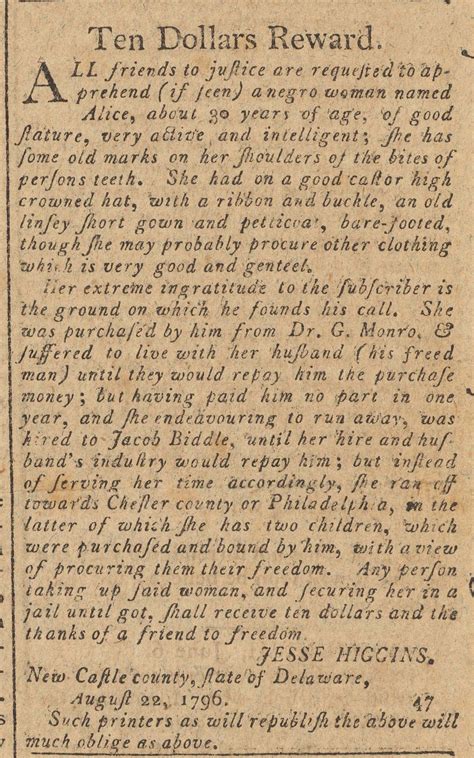 Ten Dollars Reward.
ALL friends to juſtice are requeſted to ap-
prehend (if ſeen) a negro woman named
Alice, about 30 years of age, of good
ſtature, very active and intelligent; ſhe has
ſome old marks on her ſhoulders of the bites of
perſons teeth. She had on a good caſtor high
crowned hat, with a ribbon and buckle, an old
linſey ſhort gown and petticoat, bare-footed,
though ſhe may probably procure other clothing
which is very good and genteel.
Her extreme ingratitude to the ſubſcriber is
the ground on which he founds his call. She
was purchaſed by him from Dr. G. Monro, &
ſuffered to live with her huſband (his freed
man) until they would repay him the purchaſe
money; but having paid him no part in one
year, and ſhe endeavouring to run away, was
hired to Jacob Biddle, until her hire and huſ-
band's induſtry would repay him; but inſtead
of ſerving her time accordingly, ſhe ran off
towards Cheſter county or Philadelphia, in the
latter of which ſhe has two children, which
were purchaſed and bound by him, with a view
of procuring them their freedom. Any perſon
taking up ſaid woman, and ſecuring her in a
jail until got, ſhall receive ten dollars and the
thanks of a friend to freedom.
JESSE HIGGINS.
New Caſtle county, ſtate of Delaware,
Auguſt 22, 1796. 47
Such printers as will republiſh the above will
much oblige as above.